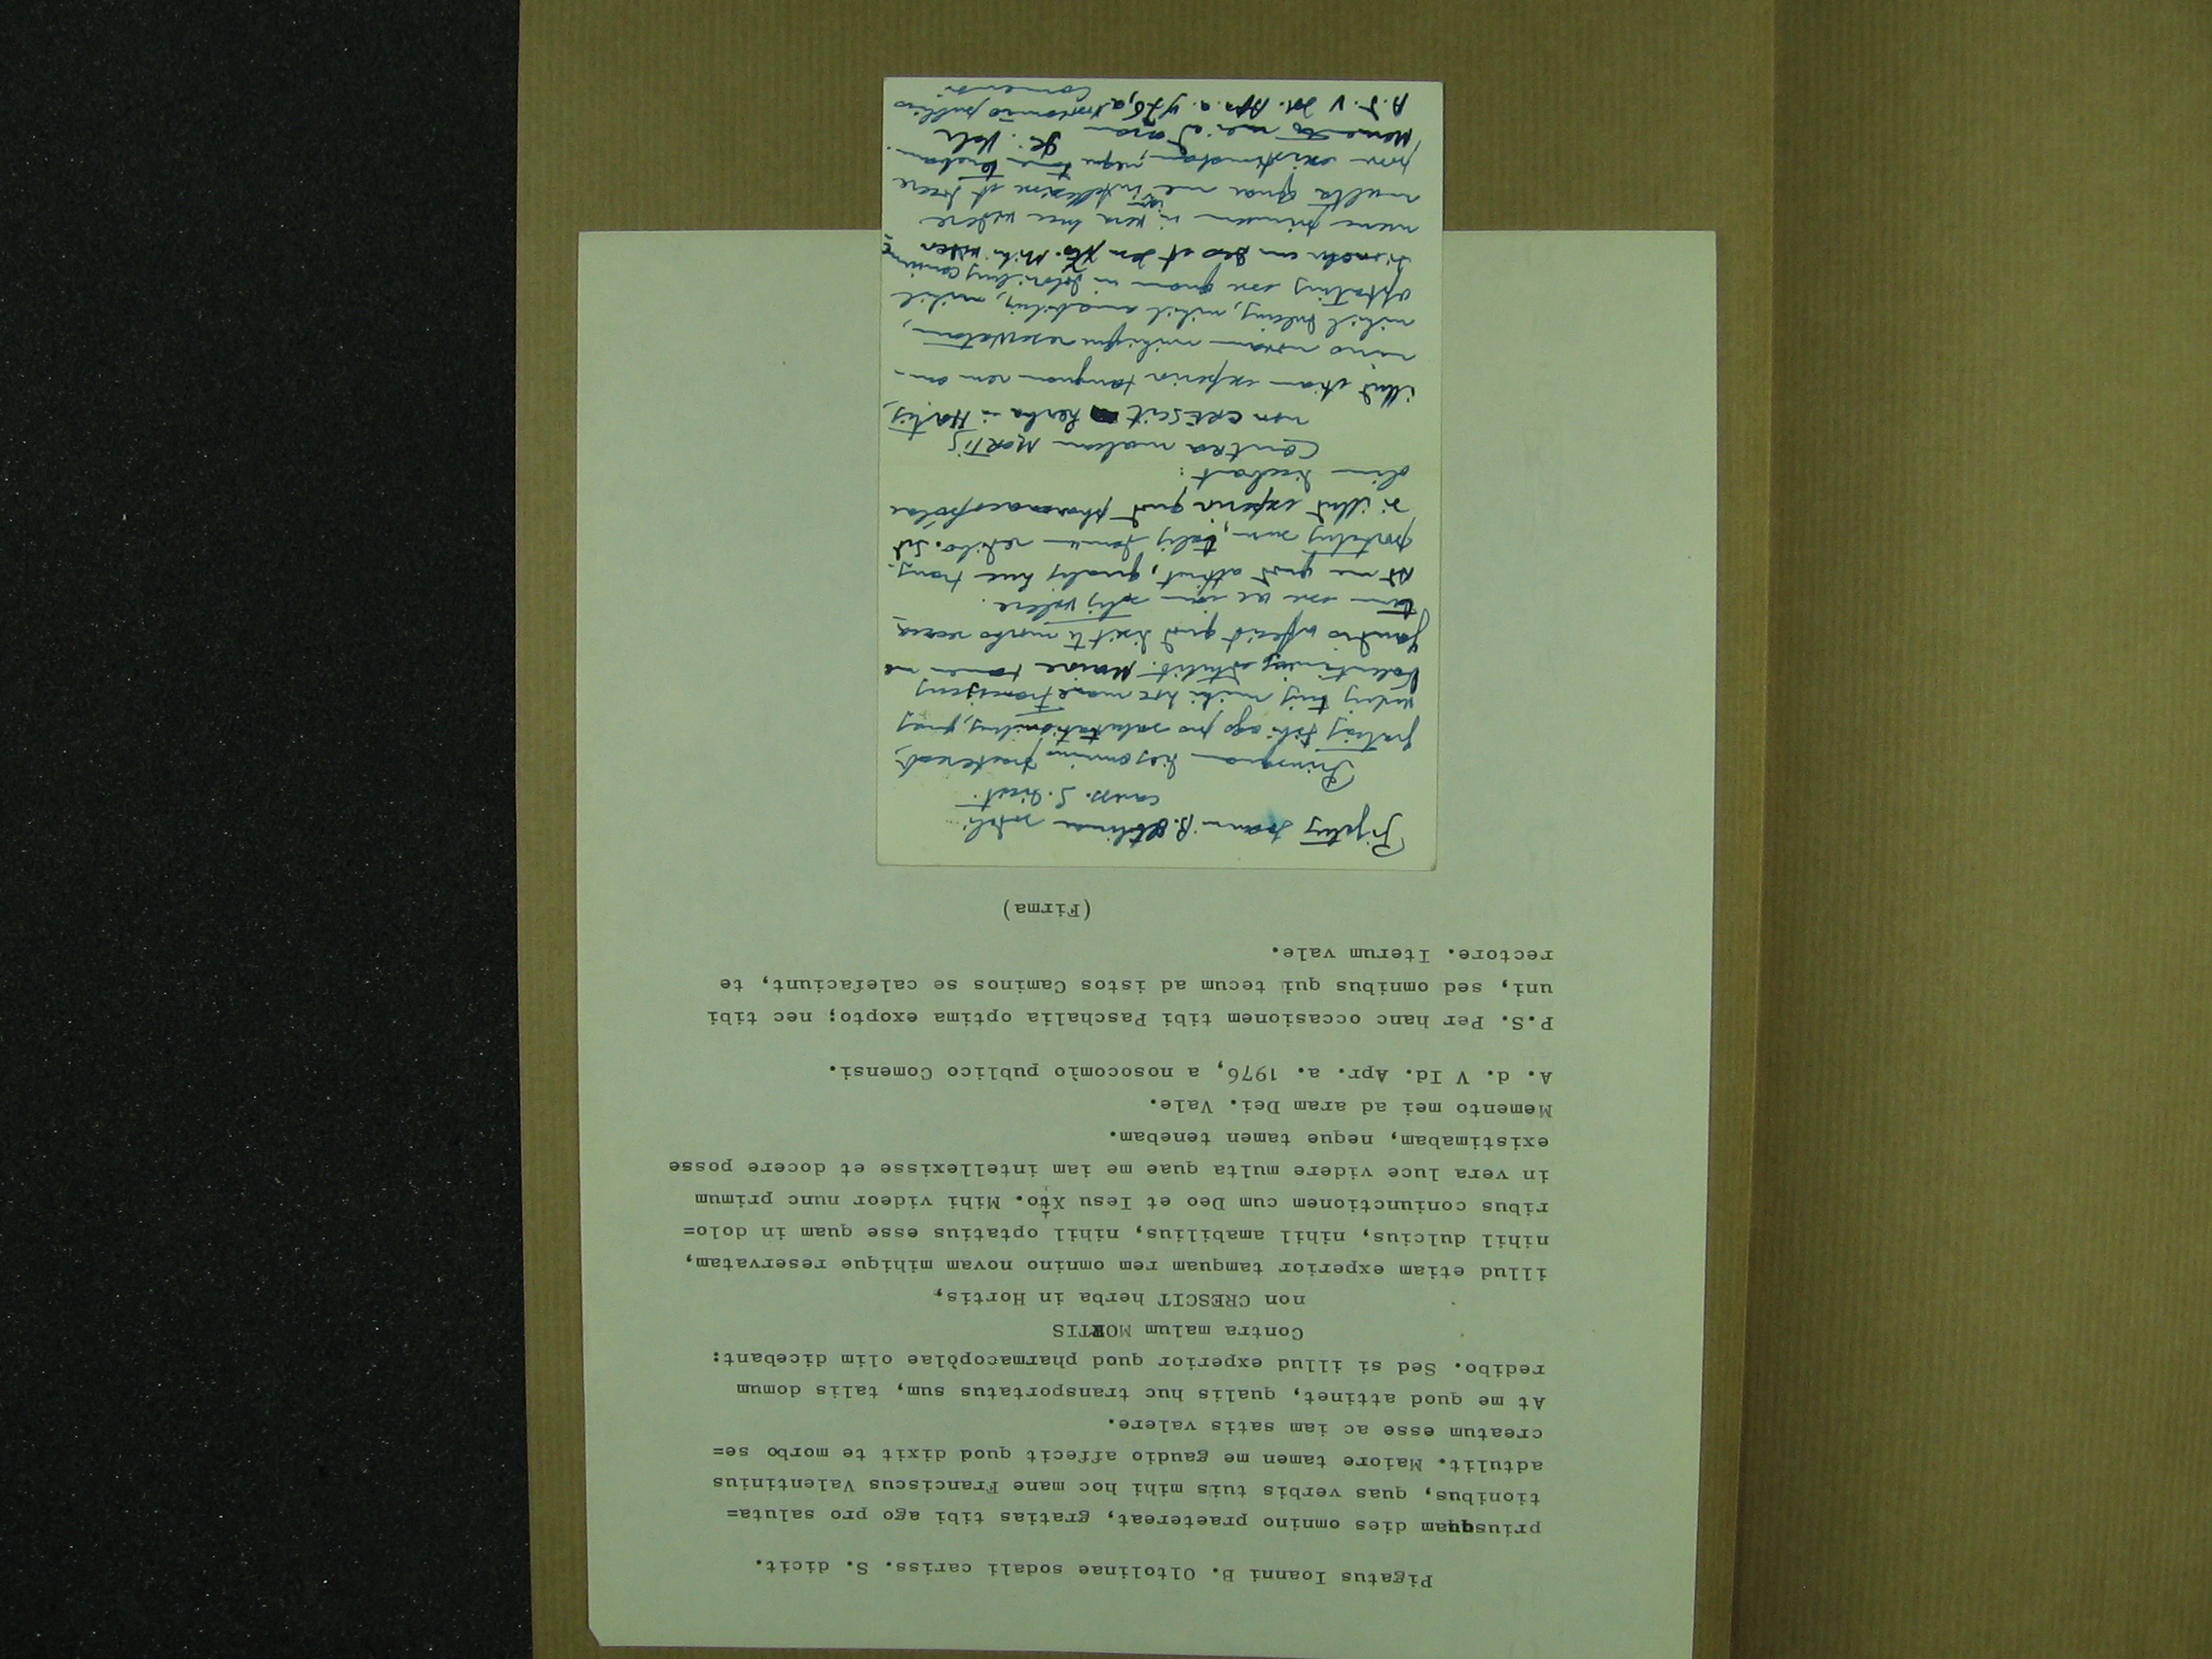 Pigatus Ioanni B. Oltolinae sodali cariss. S. dicit.
priusquam dies omnino praetereat, gratias tibi ago pro saluta=
tionibus, quas verbis tuis mihi hoc mane Franciscus Valentinius
adtulit. Maiore tamen me gaudio affecit quod dixit te morbo se=
creatum esse ac iam satis valere.
At me quod attinet, qualis huc transportatus sum, talis domum
redibo. Sed si illud experior quod pharmacopòlae olim dicebant:
Contra malum MORTIS
non CRESCIT herba in Hortis,
illud etiam experior tamquam rem omnino novam mihique reservatam,
nihil dulcius, nihil amabilius, nihil optatius esse quam in dolo=
ribus coniunctionem cum Deo et Iesu Xto. Mihi videor nunc primum
in vera luce videre multa quae me iam intellexisse et docere posse
existimabam, neque tamen tenebam.
Memento mei ad aram Dei. Vale.
A. d. V Id. Apr. a. 1976, a nosocomio publico Comensi.
P.S. Per hanc occasionem tibi Paschalia optima exopto; nec tibi
uni, sed omnibus qui tecum ad istos Caminos se calefaciunt, te
rectore. Iterum vale.
(Firma)
Pigatus Ioanni B. Oltolinae sodali
cariss. S. dicit.
Priusquam dies omnino praetereat,
gratias tibi ago pro salutationibus, quas
verbis tuis mihi hoc mane Franciscus
Valentinius attulit. Maiore tamen me
gaudio affecit quod dixit te morbo recrea
tum esse ac iam satis valere.
At me quod attinet, qualis huc trans-
portatus sum, talis domum redibo. Sed
si illud experior quod pharmacopòlae
olim dicebant:
Contra malum MORTIS
non CRESCIT herba in Hortis,
illud etiam experior tamquam rem om-
nino novam mihique reservatam,
nihil dulcius, nihil amabilius, nihil
optatius esse quam in doloribus coniunc
tionem cum Deo et Iesu Xto. Mihi videor
nunc primum in vera luce videre
multa quae me iam intellexisse et docere
posse existimabam, neque tamen tenebam.
Memento mei ad aram Vale
A. d. V Id. Apr. a. 1976, a nosocomio publico
Comensi